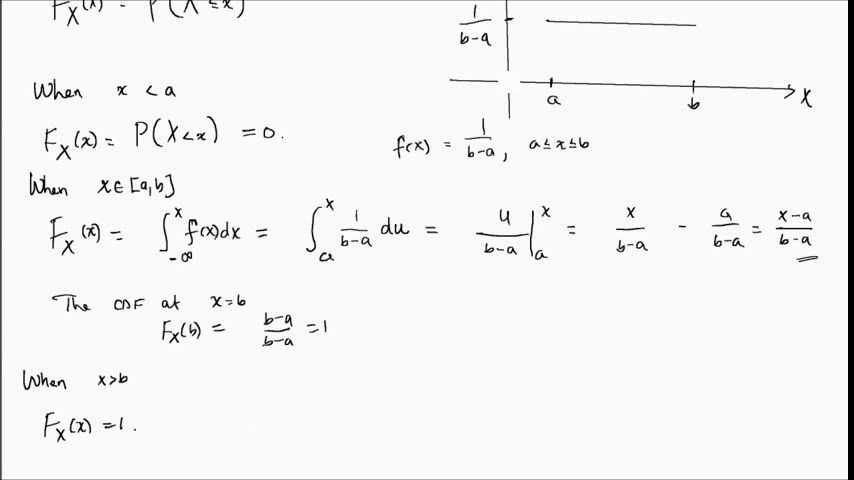 F_X(x) = P(X ≤ x)
1/(b-a)
a b X
When x < a
F_X(x) = P(X<x) = 0.
f(x) = 1/(b-a), a ≤ x ≤ b
When x ∈ [a,b]
F_X(x) = ∫_{-∞}^{x} f(x)dx = ∫_{a}^{x} 1/(b-a) du = u/(b-a) |_{a}^{x} = x/(b-a) - a/(b-a) = (x-a)/(b-a)
The CDF at x=b
F_X(b) = (b-a)/(b-a) = 1
When x>b
F_X(x) = 1.